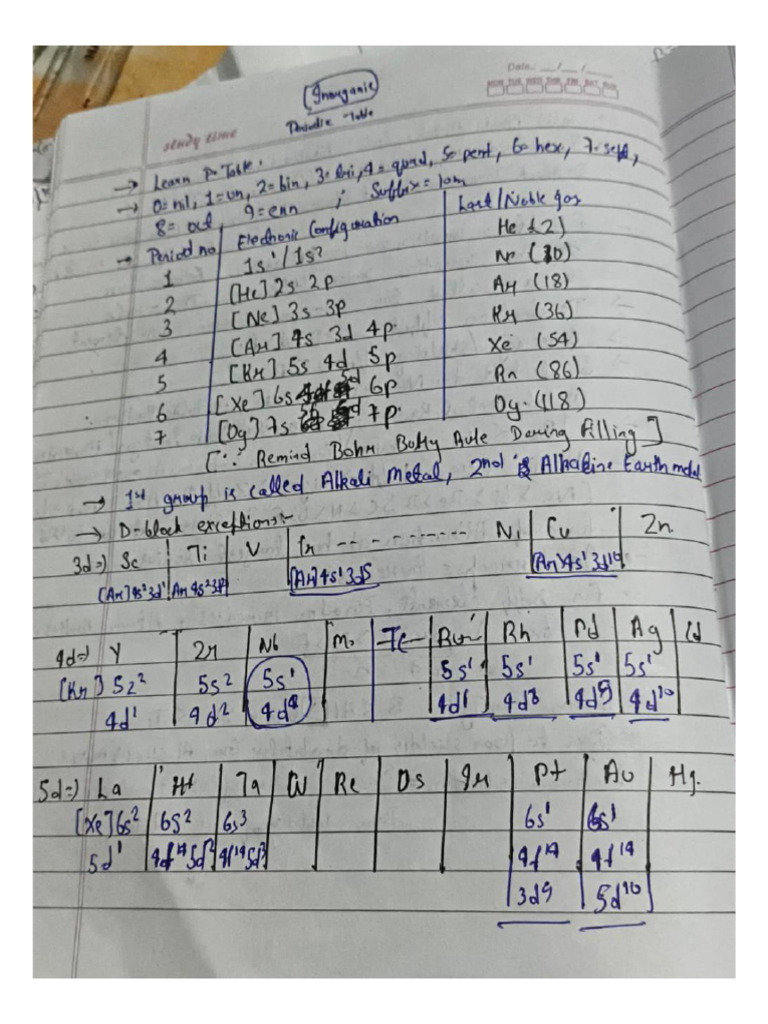 Date: __/__/__
MON TUE WED THR FRI SAT SUN
study time
Inorganic
Periodic Table
→ Learn P Table.
→ 0=nil, 1=un, 2=bin, 3=tri, 4=quad, 5=pent, 6=hex, 7=sept,
8= oct 9=enn ; Suffix= ium
→ Period no Electronic Configuration Last/Noble gas
1 1s¹/1s² He (2)
2 [He] 2s 2p Ne (10)
3 [Ne] 3s 3p Ar (18)
4 [Ar] 4s 3d 4p. Kr (36)
5 [Kr] 5s 4d 5p Xe (54)
6 [Xe] 6s 5d 6p Rn (86)
7 [Og] 7s 7p. Og (118)
[∵ Remind Bohr Bury Rule During Filling]
→ 1st group is called Alkali Metal, 2nd is Alkaline Earth metal
→ D-block exceptions:-
3d=) Sc Ti V Cr ------------ Ni Cu Zn
[Ar]4s²3d¹ Ar 4s²3d² [Ar]4s¹3d5 [Ar]4s¹3d¹⁰
4d=) Y Zr Nb Mo Tc Ru Rh Pd Ag Cd
[Kr] 5s² 5s² 5s¹ 5s¹ 5s¹ 5s¹ 5s¹
4d¹ 4d² 4d⁸ 4d⁹ 4d¹⁰
5d=) La Hf Ta W Re Os Ir Pt Au Hg.
[Xe]6s² 6s² 6s³ 6s¹ 6s¹
5d¹ 4f¹⁴5d² 4f¹⁴5d³ 4f¹⁴ 4f¹⁴
3d9 5d¹⁰